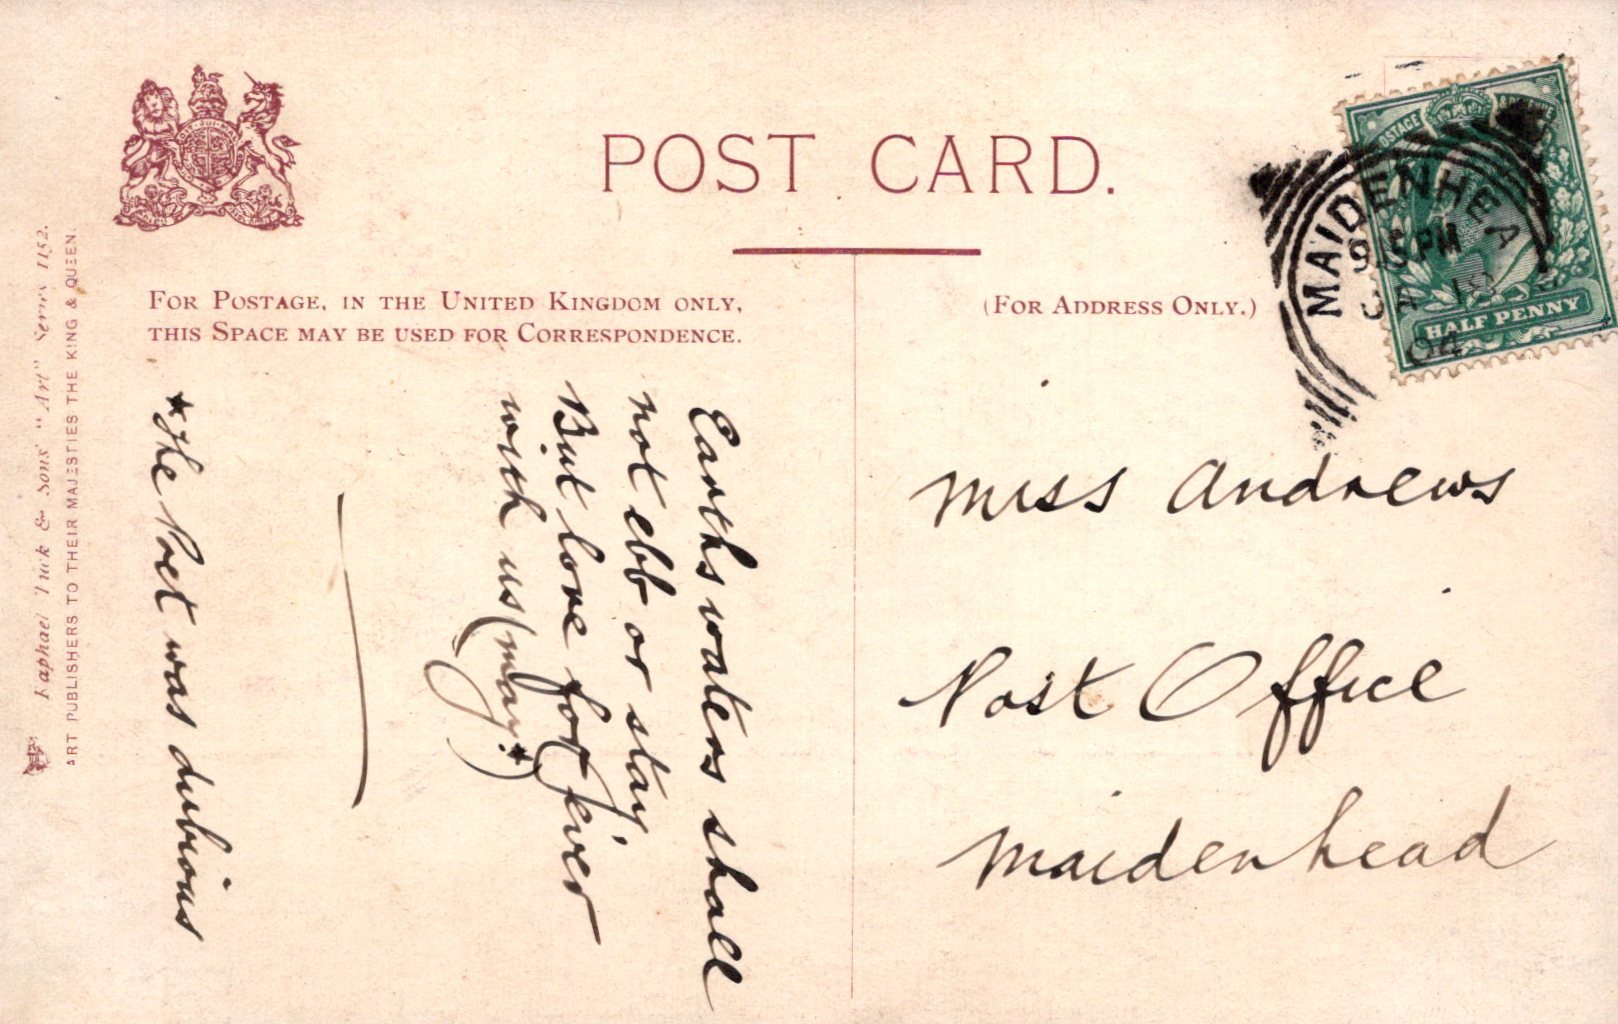 POST CARD.
FOR POSTAGE, IN THE UNITED KINGDOM ONLY,
THIS SPACE MAY BE USED FOR CORRESPONDENCE.
(FOR ADDRESS ONLY.)
Earths waters shall
not ebb or stay,
But love for ever
with us (may.*)
*The Poet was dubious
Miss Andrews
Post Office
Maidenhead
POSTAGE
HALF PENNY
MAIDENHEA
PM
04
Raphael Tuck & Sons' "Art" Series 1152.
ART PUBLISHERS TO THEIR MAJESTIES THE KING & QUEEN.